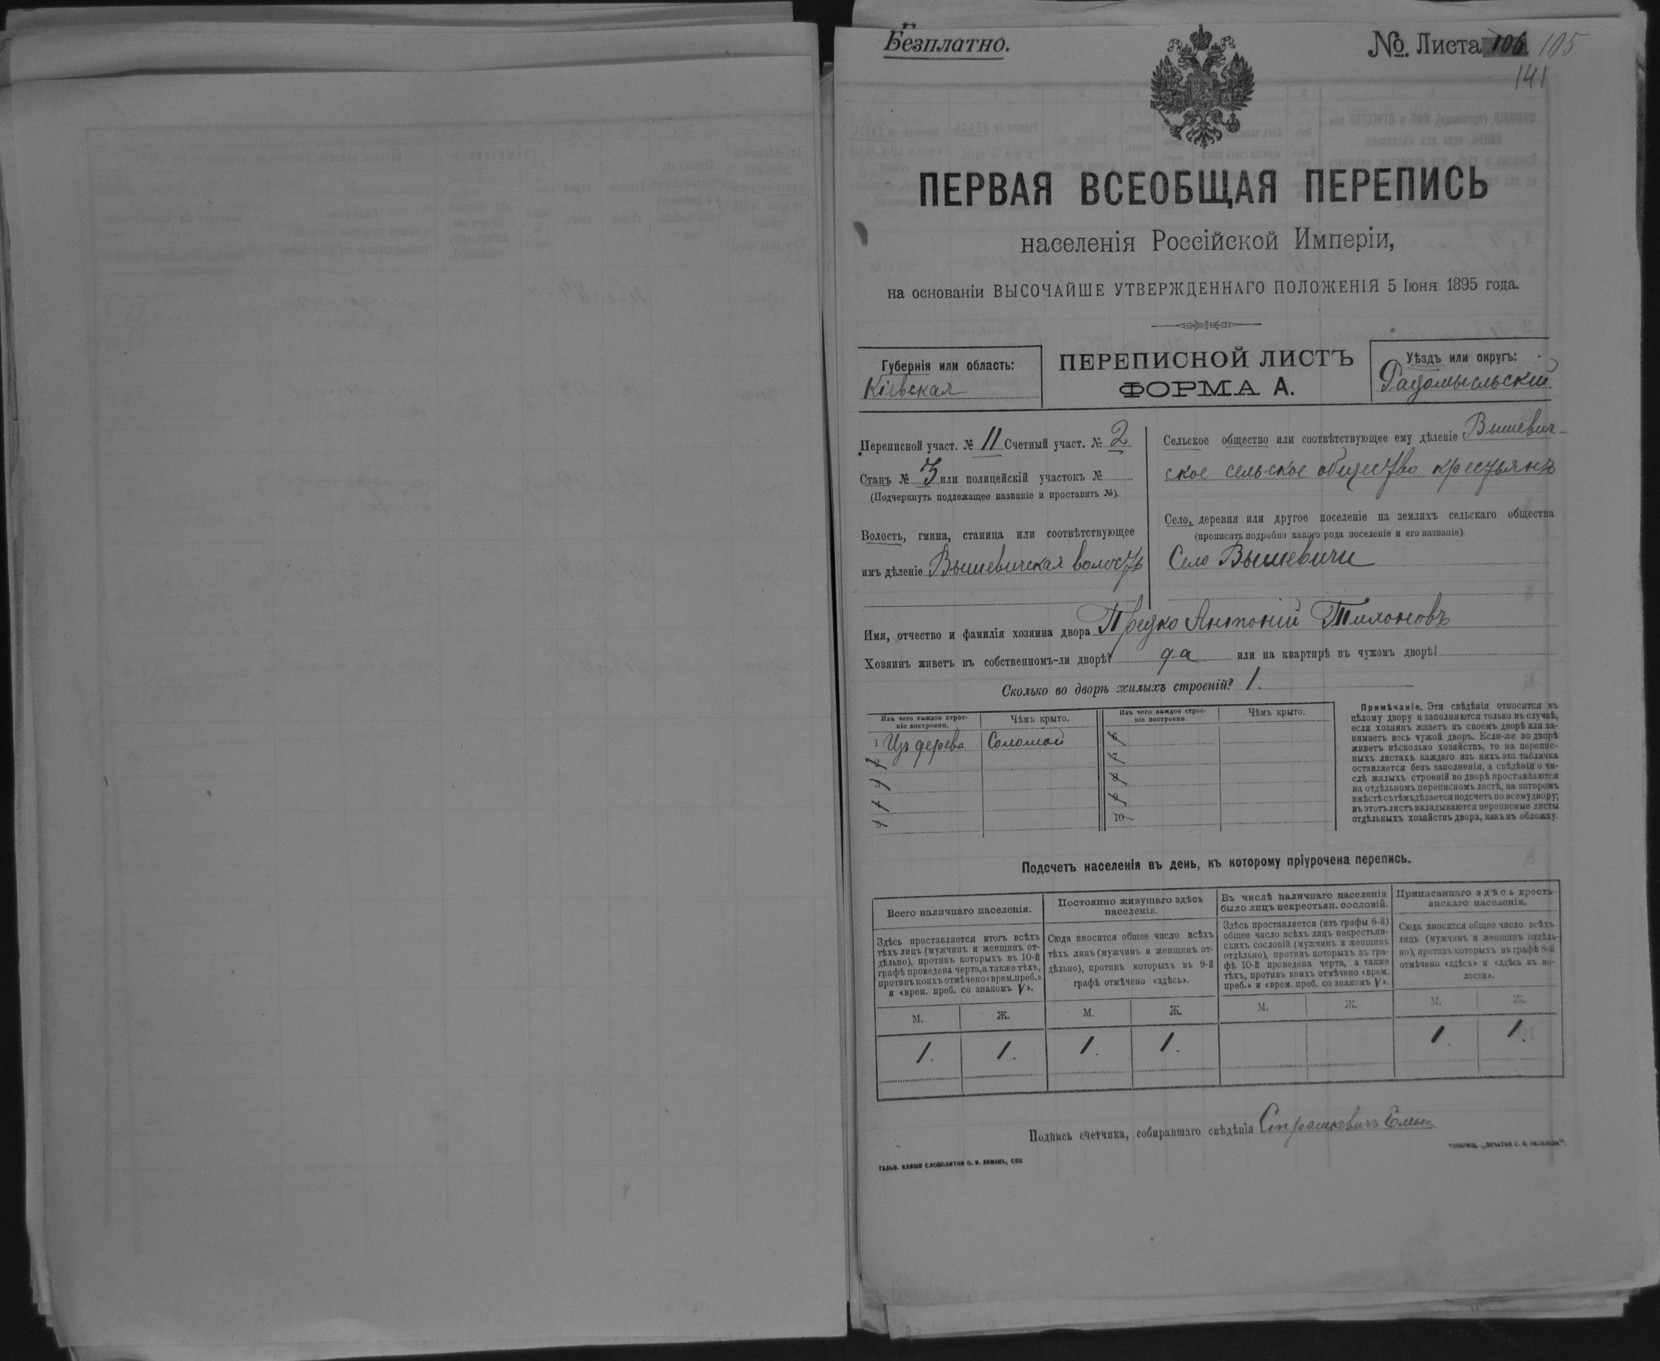 Безплатно.
№ Листа 106. 105
141
ПЕРВАЯ ВСЕОБЩАЯ ПЕРЕПИСЬ
населенія Россійской Имперіи,
на основаніи ВЫСОЧАЙШЕ УТВЕРЖДЕННАГО ПОЛОЖЕНІЯ 5 Іюня 1895 года.
Губернія или область:
Кіевская
ПЕРЕПИСНОЙ ЛИСТЪ
ФОРМА А.
Уѣздъ или округъ:
Радомысльскій
Переписной участ. № 11 Счетный участ. № 2
Станъ № 3 или полицейскій участокъ №
(Подчеркнуть подлежащее названіе и проставить №).
Волость, гмина, станица или соотвѣтствующее
имъ дѣленіе Вышевичская волость
Сельское общество или соотвѣтствующее ему дѣленіе Вышевич-
ское сельское общество крестьянъ
Село, деревня или другое поселеніе на земляхъ сельскаго общества
(прописать подробно какого рода поселеніе и его названіе).
Село Вышевичи
Имя, отчество и фамилія хозяина двора Антоній Тихоновъ
Хозяинъ живетъ въ собственномъ-ли дворѣ? да или на квартирѣ въ чужомъ дворѣ?
Сколько во дворѣ жилыхъ строеній? 1.
Изъ чего каждое строе-
ніе построено.
Чѣмъ крыто.
Изъ чего каждое строе-
ніе построено.
Чѣмъ крыто.
1 Изъ дерева Соломой
10
Примѣчаніе. Эти свѣдѣнія относятся къ
цѣлому двору и заполняются только въ случаѣ,
если хозяинъ живетъ въ своемъ дворѣ или за-
нимаетъ весь чужой дворъ. Если-же во дворѣ
живетъ нѣсколько хозяйствъ, то на перепис-
ныхъ листахъ каждаго изъ нихъ эта табличка
оставляется безъ заполненія, а свѣдѣнія о чи-
слѣ жилыхъ строеній во дворѣ проставляются
на отдѣльномъ переписномъ листѣ, на которомъ
вмѣстѣ съ тѣмъ дѣлается подсчетъ по всему двору;
въ этотъ листъ вкладываются переписные листы
отдѣльныхъ хозяйствъ двора, какъ въ обложку.
Подсчетъ населенія въ день, къ которому пріурочена перепись.
Всего наличнаго населенія.
Постоянно живущаго здѣсь
населенія.
Въ числѣ наличнаго населенія
было лицъ некрестьян. сословій.
Приписаннаго здѣсь кресть-
янскаго населенія.
Здѣсь проставляется итогъ всѣхъ
тѣхъ лицъ (мужчинъ и женщинъ от-
дѣльно), противъ которыхъ въ 10-й
графѣ проведена черта, а также тѣхъ,
противъ коихъ отмѣчено «врем. преб.»
и «врем. преб. со знакомъ V».
Сюда вносится общее число всѣхъ
тѣхъ лицъ (мужчинъ и женщинъ от-
дѣльно), противъ которыхъ въ 9-й
графѣ отмѣчено «здѣсь».
Здѣсь проставляется (изъ графы 6-й)
общее число всѣхъ лицъ некрестьян-
скихъ сословій (мужчинъ и женщинъ
отдѣльно), противъ которыхъ въ гра-
фѣ 10-й проведена черта, а также
тѣхъ, противъ коихъ отмѣчено «врем.
преб.» и «врем. преб. со знакомъ V».
Сюда вносится общее число всѣхъ
лицъ (мужчинъ и женщинъ отдѣль-
но), противъ которыхъ въ графѣ 8-й
отмѣчено «здѣсь» и «здѣсь къ во-
лости».
М. Ж. М. Ж. М. Ж. М. Ж.
1. 1. 1. 1. 1. 1.
Подпись счетчика, собиравшаго свѣдѣнія Страшкевичъ